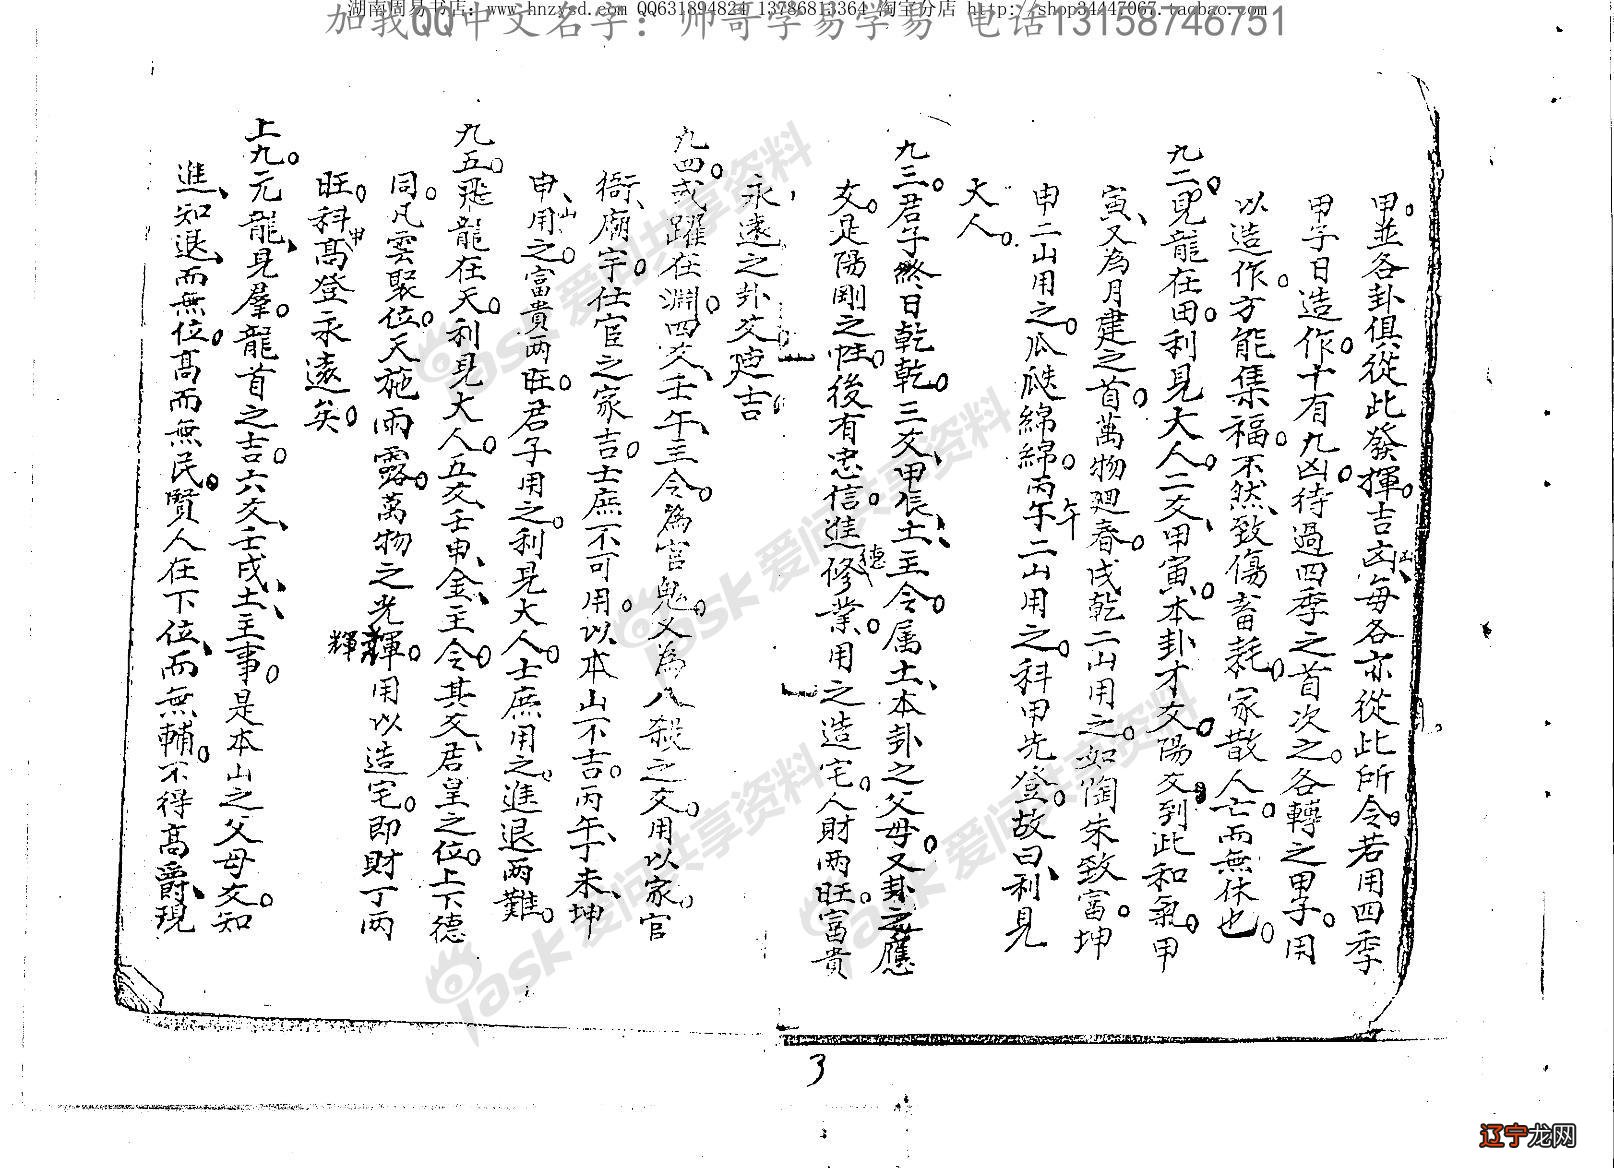 湖南周易书店：www.hnzysd.com QQ631894824 13786813364 淘宝分店 http://shop34447067.taobao.com
加我QQ中文名字：帅哥学易学易 电话13158746751
甲。並各卦俱從此發揮。吉凶、每各亦從此所令。若用四季
甲子日造作。十有九凶。待過四季之首次之。各轉之甲子。用
以造作。方能集福。不然、致傷畜耗。家散人亡。而無休也。
九二。見龍在田。利見大人。二爻、甲寅、本卦才爻。陽爻到此和氣。甲
寅、又為月建之首。萬物廻春。戌乾二山用之。如陶朱致富。坤
申二山用之。瓜瓞綿綿。丙午二山用之。科甲先登。故曰、利見
午
大人。
九三。君子終日乾乾。三爻、甲辰、土主令。属土、本卦之父母。又卦之應
爻。是陽剛之性。後有忠信。進德修業。用之造宅。人財两旺。富貴
永遠之卦爻
吉。
九四。或躍在淵。四爻、壬午、主令。為官鬼。又為八殺之爻。用以家官
衙廟宇。仕宦之家吉。士庶不可用。以本山不吉。丙午、丁未、坤
申山用之。富貴两旺。君子用之。利見大人。士庶用之。進退两難。
九五。飛龍在天。利見大人。五爻、壬申、金、主令。其爻、君皇之位。上下德
同。凡雲聚位。天施雨露。萬物之光輝。用以造宅。即財丁两
輝
旺。科甲高登永遠矣。
上九。元龍、見羣龍首之吉。六爻、壬戌、土、主事。是本山之父母爻。知
進、知退、而無位。高而無民。賢人在下位、而無輔。不得高爵、現
iask 爱问共享资料
iask 爱问共享资料
iask 爱问共享资料
iask 爱问共享资料
3
辽宁龙网